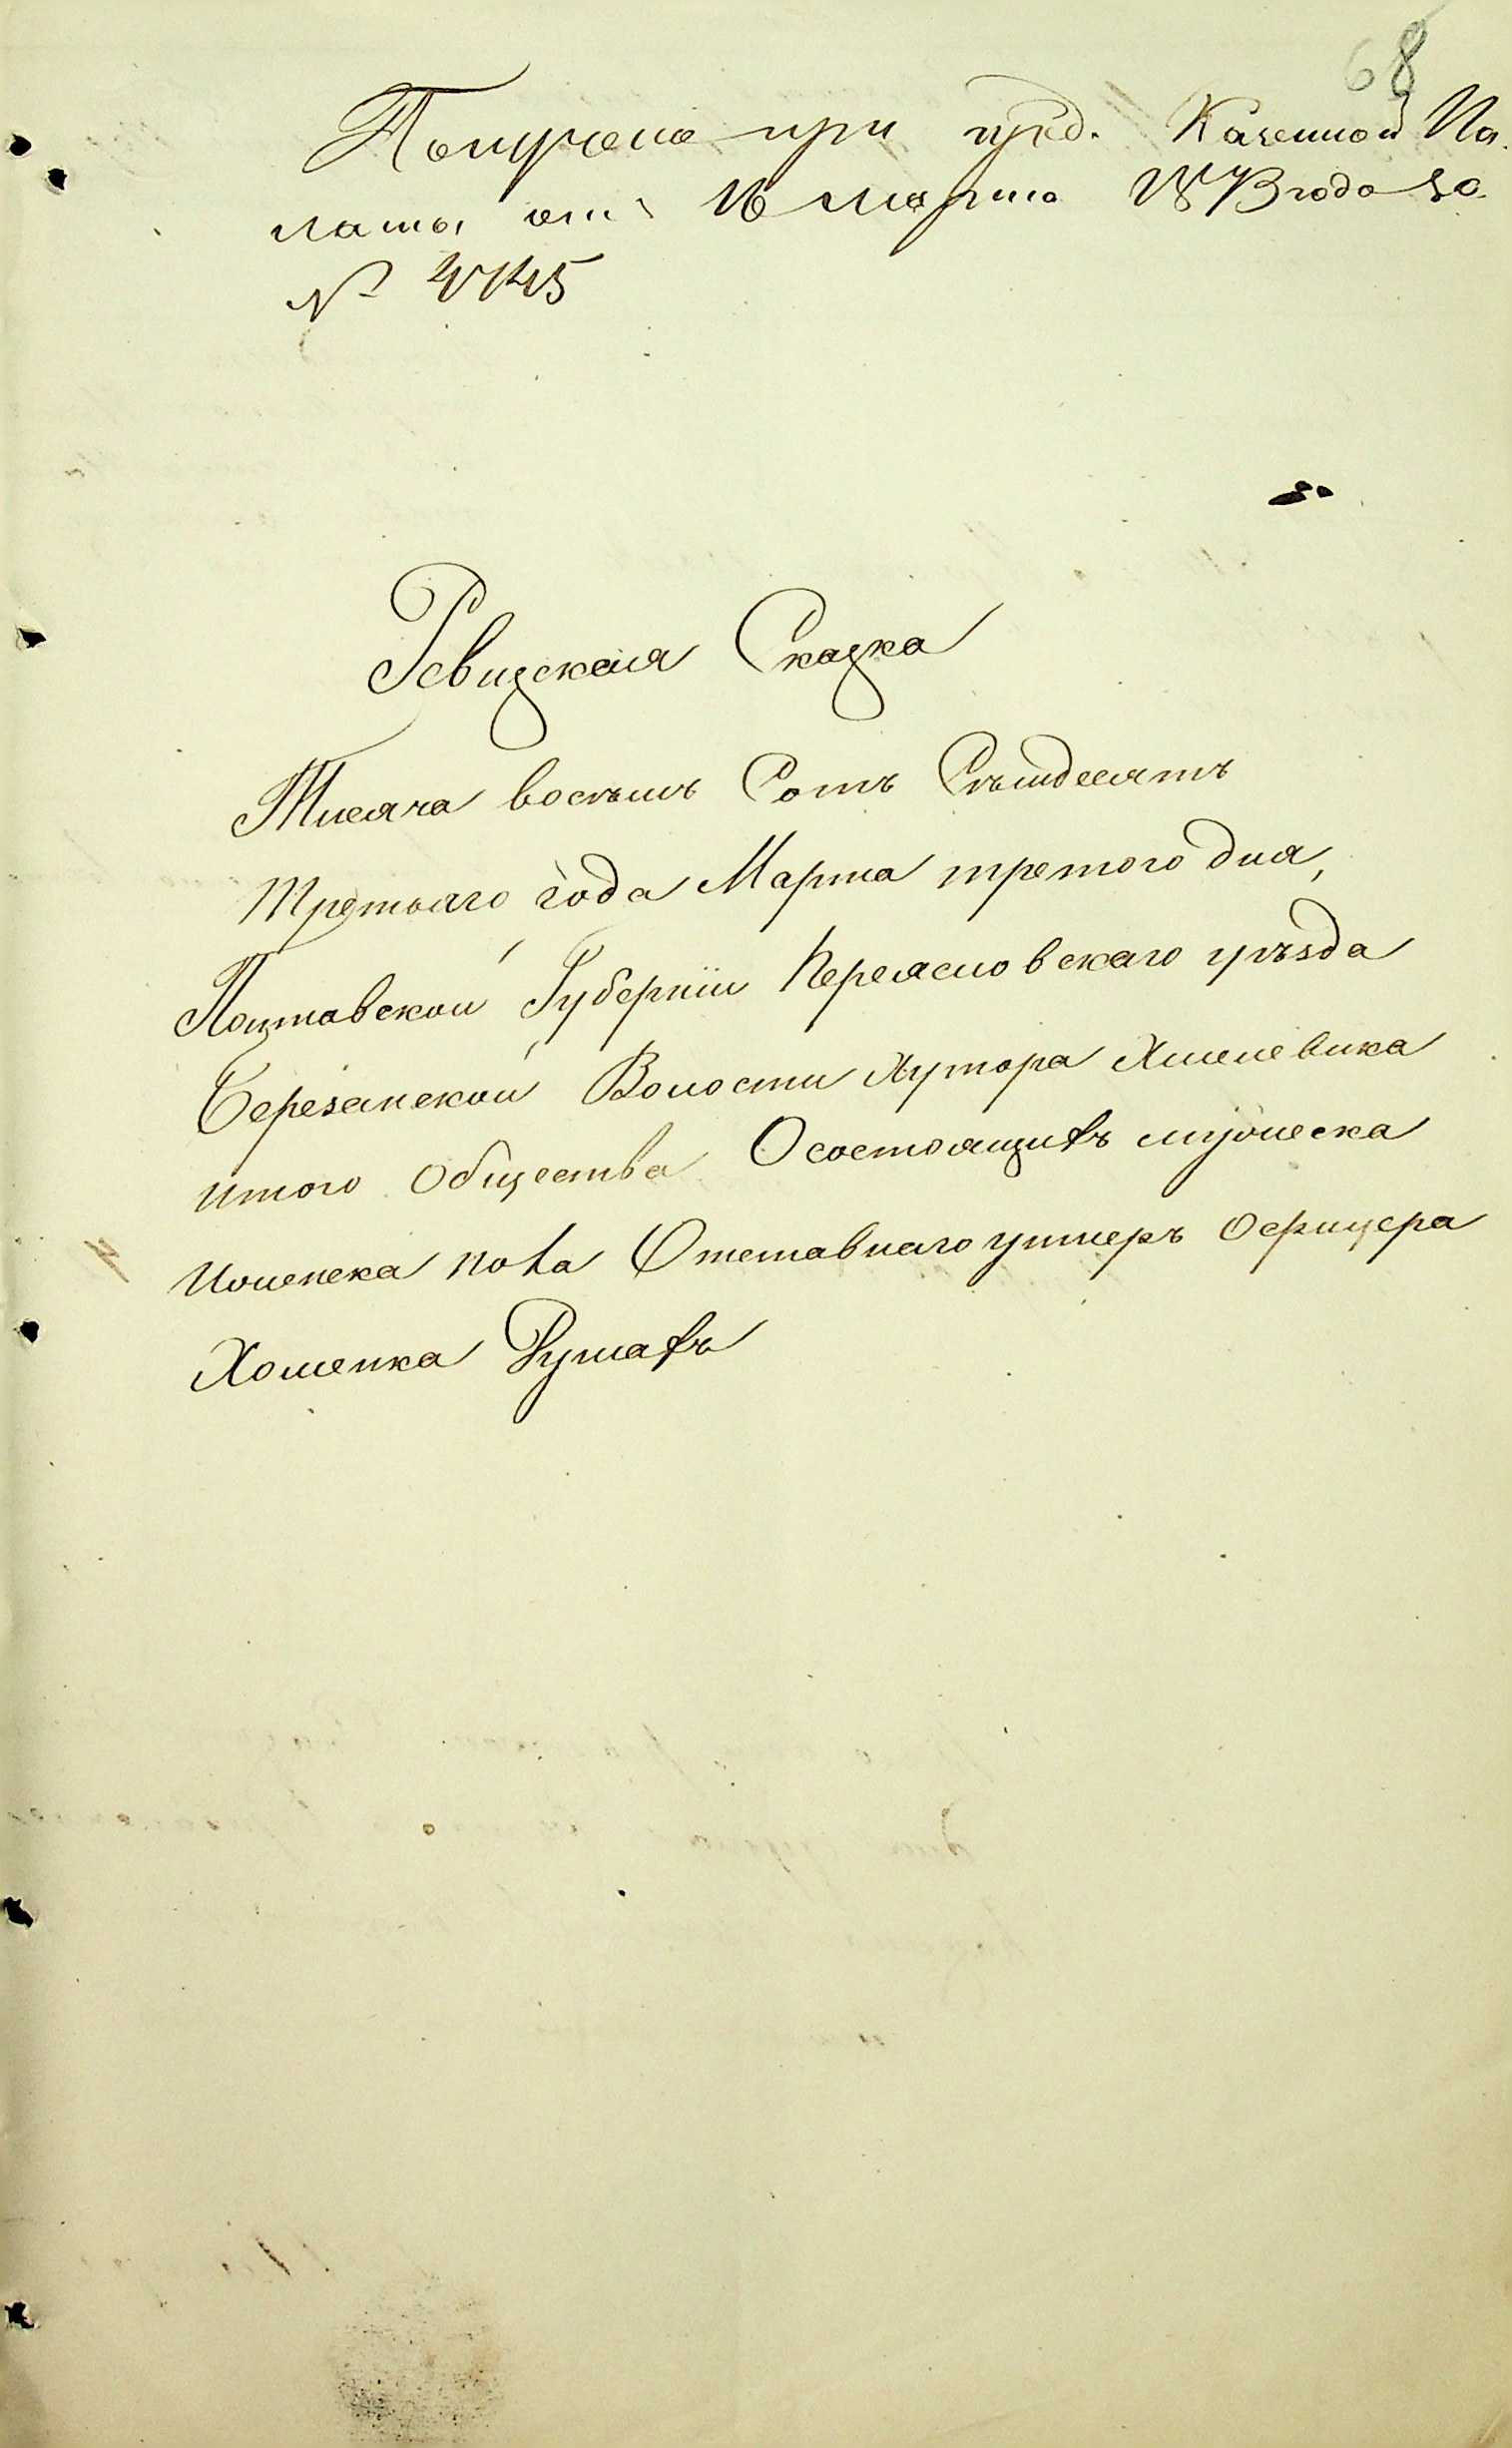 68
Получена при пред. Казенной Па
латы отъ 16 марта 1873 года за
№ 4745
Ревизская Сказка
Тисяча восъмъ Сотъ Съмдесятъ
Третьяго года Марта третого дня,
Полтавской Губерніи Переясловскаго уъзда
Березанской Волости Хутора Хмелевика
итого Общества О состоящихъ мужеска
иженска пола Отставнаго унтеръ Офицера
Хоменка Душахъ